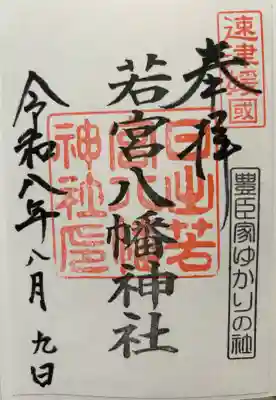 速津媛國
奉拝
豊臣家ゆかりの社
若宮八幡神社
日出若
宮八幡
神社印
令和八年八月九日